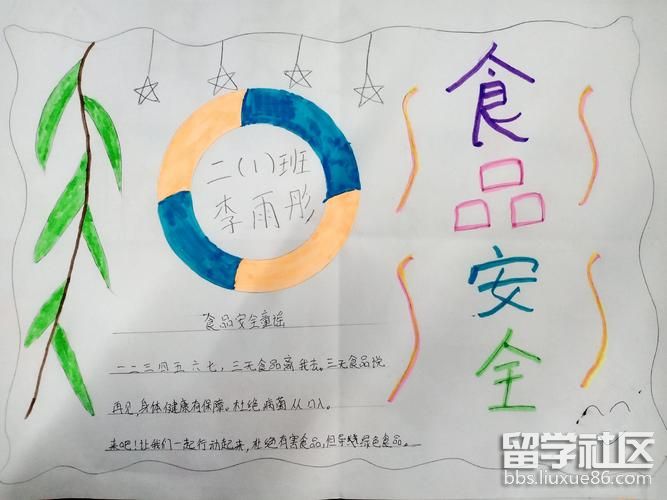 食品安全
二(1)班
李雨彤
食品安全童谣
一二三四五六七,三无食品离我去。三无食品说
再见,身体健康有保障。杜绝病菌从口入。
来吧!让我们一起行动起来,杜绝有害食品,倡导绿色食品。
留学社区
bbs.liuxue86.com